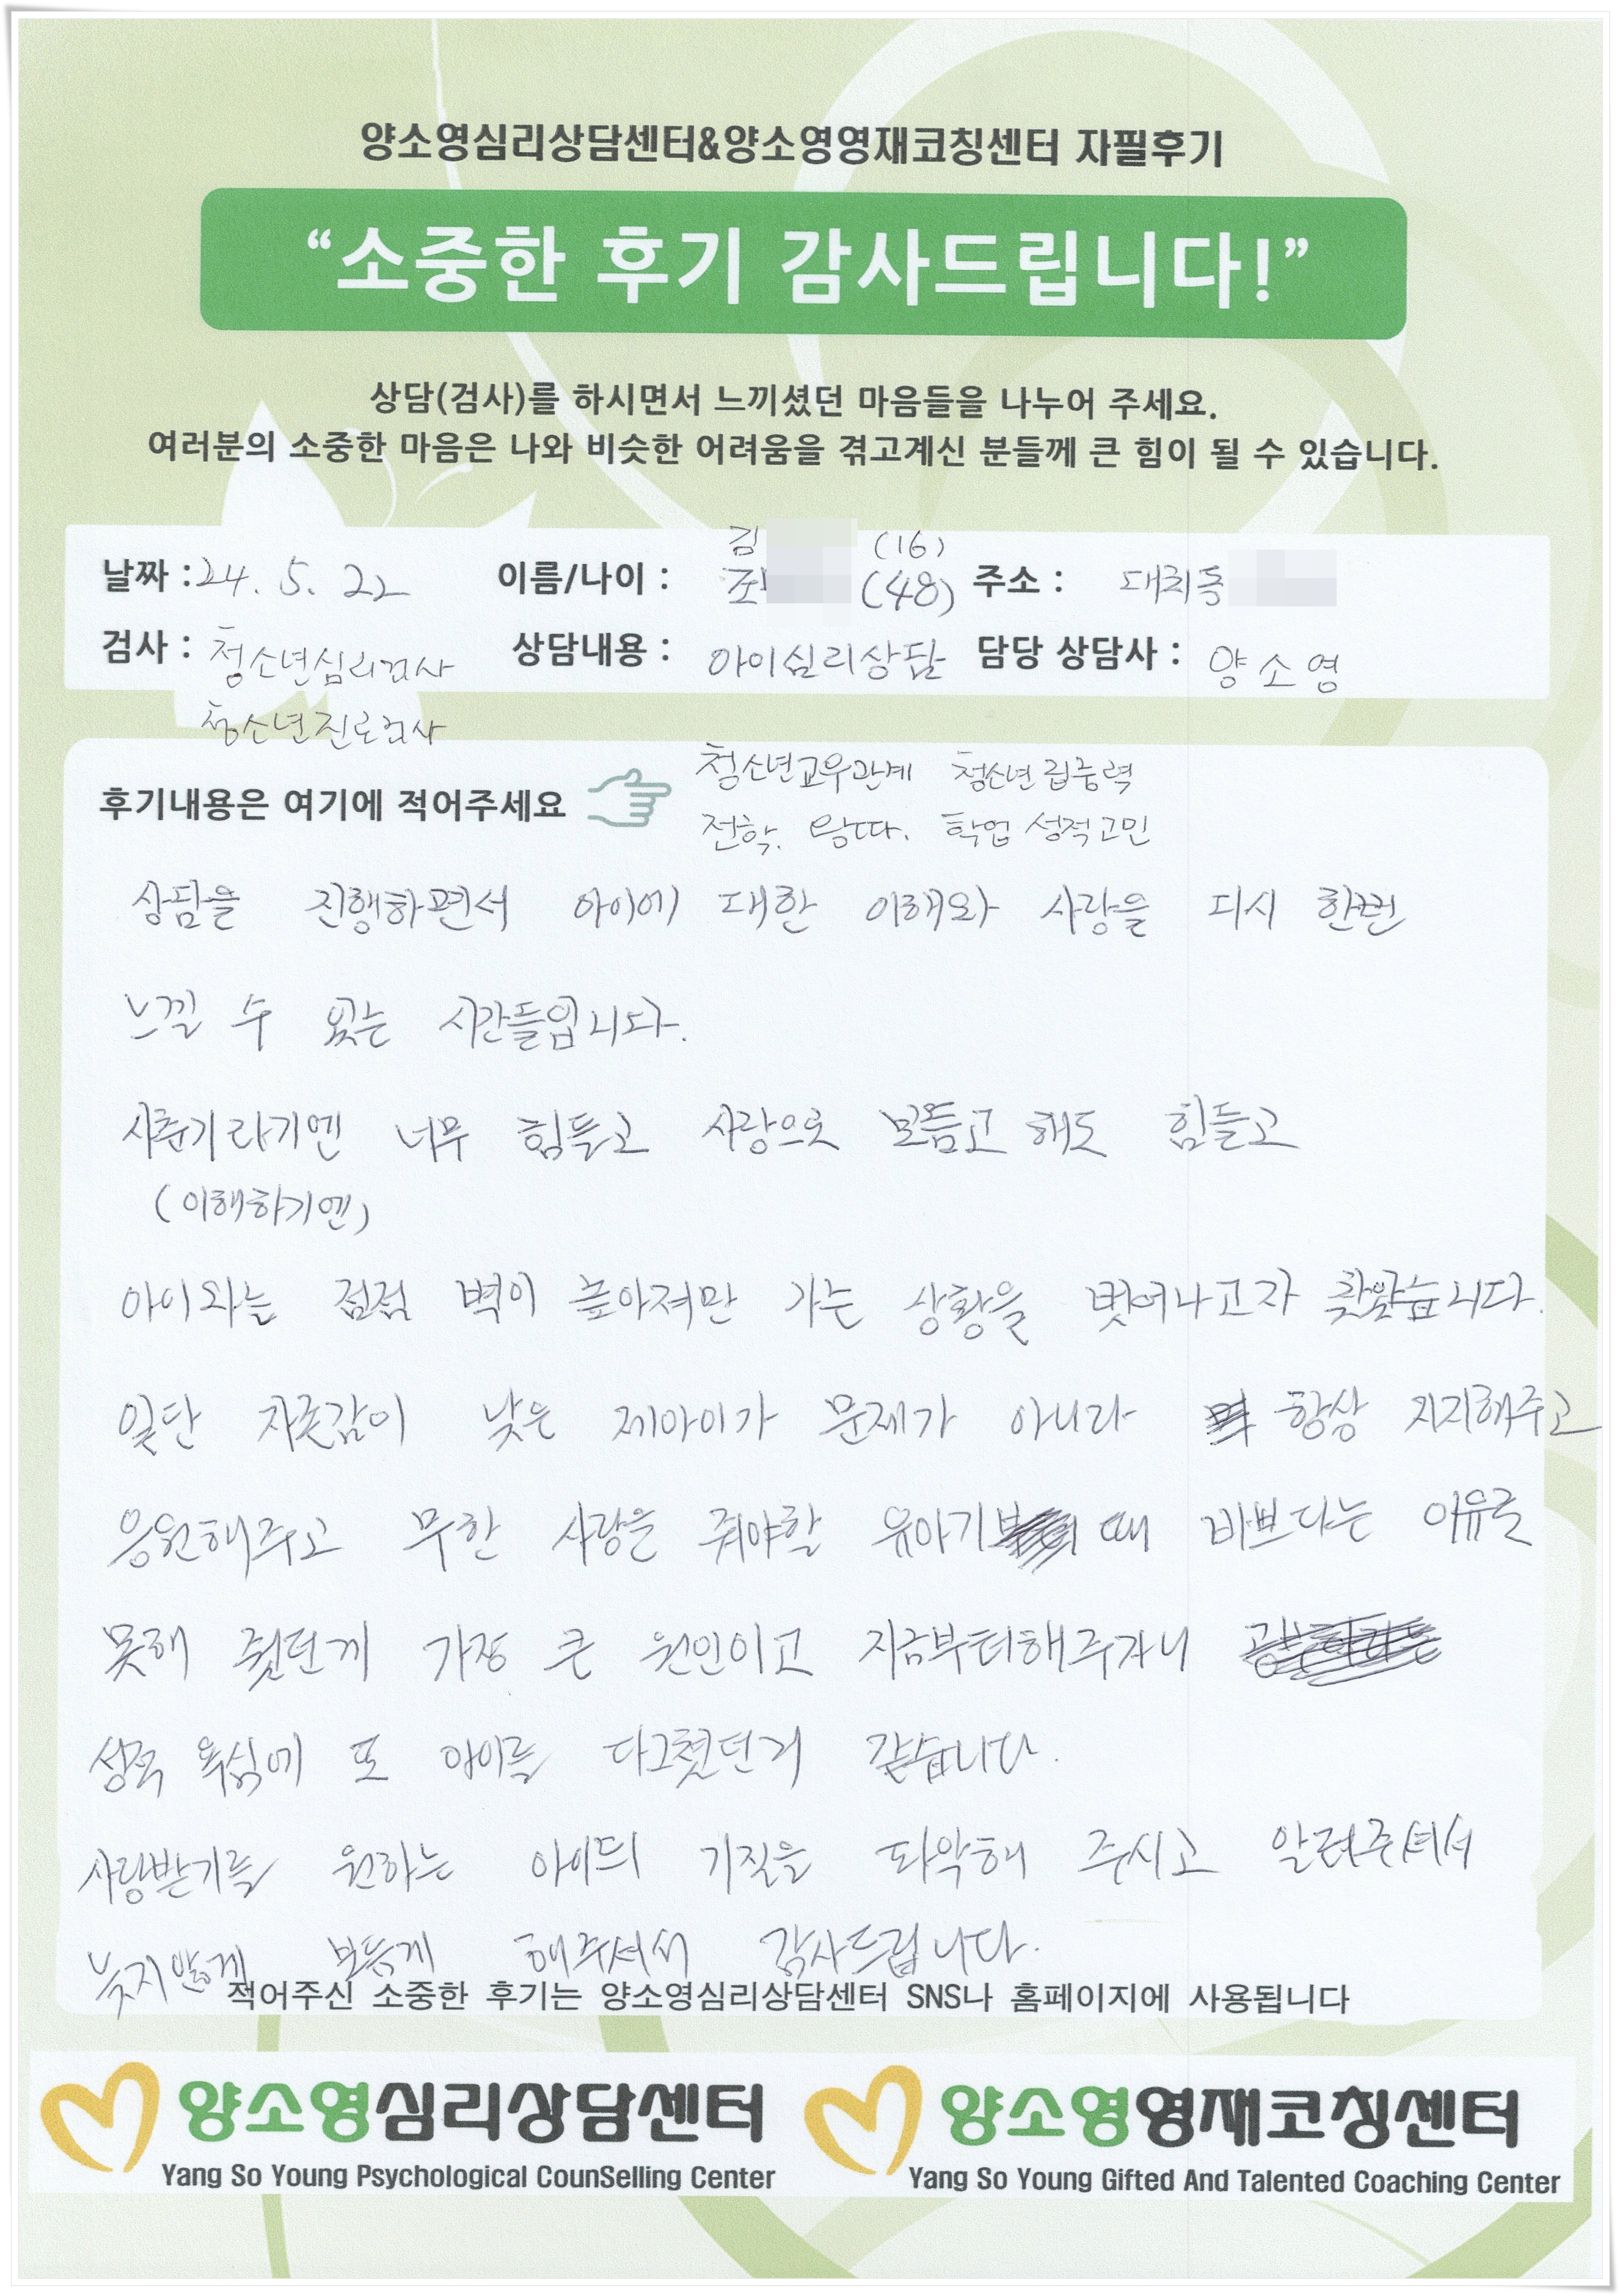 양소영심리상담센터&양소영영재코칭센터 자필후기
“소중한 후기 감사드립니다!”
상담(검사)를 하시면서 느끼셨던 마음들을 나누어 주세요.
여러분의 소중한 마음은 나와 비슷한 어려움을 겪고계신 분들께 큰 힘이 될 수 있습니다.
김 (16)
날짜 : 24. 5. 22 이름/나이 : 조 (48) 주소 : 대치동
검사 : 청소년심리검사 상담내용 : 아이심리상담 담당 상담사 : 양소영
청소년진로검사
청소년교우관계 청소년집중력
후기내용은 여기에 적어주세요
전학. 왕따. 학업 성적고민
상담을 진행하면서 아이에 대한 이해와 사랑을 다시 한번
느낄 수 있는 시간들입니다.
사춘기라기엔 너무 힘들고 사랑으로 보듬고 해도 힘들고
(이해하기엔)
아이와는 점점 벽이 높아져만 가는 상황을 벗어나고자 찾았습니다.
일단 자존감이 낮은 제아이가 문제가 아니라 항상 지지해주고
응원해주고 무한 사랑을 줘야할 유아기 때 바쁘다는 이유로
못해 줬던게 가장 큰 원인이고 지금부터해주자니
성적 욕심에 또 아이를 다그쳤던거 같습니다.
사랑받기를 원하는 아이의 기질을 파악해 주시고 알려주셔서
늦지않게 보듬게 해주셔서 감사드립니다.
적어주신 소중한 후기는 양소영심리상담센터 SNS나 홈페이지에 사용됩니다
양소영심리상담센터 양소영영재코칭센터
Yang So Young Psychological CounSelling Center Yang So Young Gifted And Talented Coaching Center